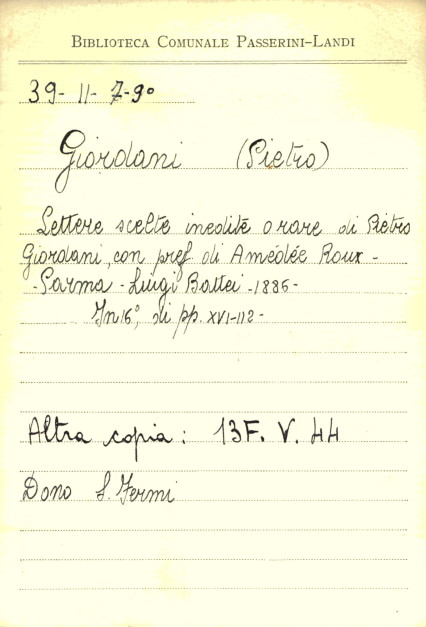 BIBLIOTECA COMUNALE PASSERINI-LANDI
39- II- 7-9°
Giordani (Pietro)
Lettere scelte inedite o rare di Pietro
Giordani, con pref. di Amédée Roux -
- Parma - Luigi Battei - 1886 -
In 16°, di pp. XVI-112 -
Altra copia: 13F. V. 44
Dono S. Fermi